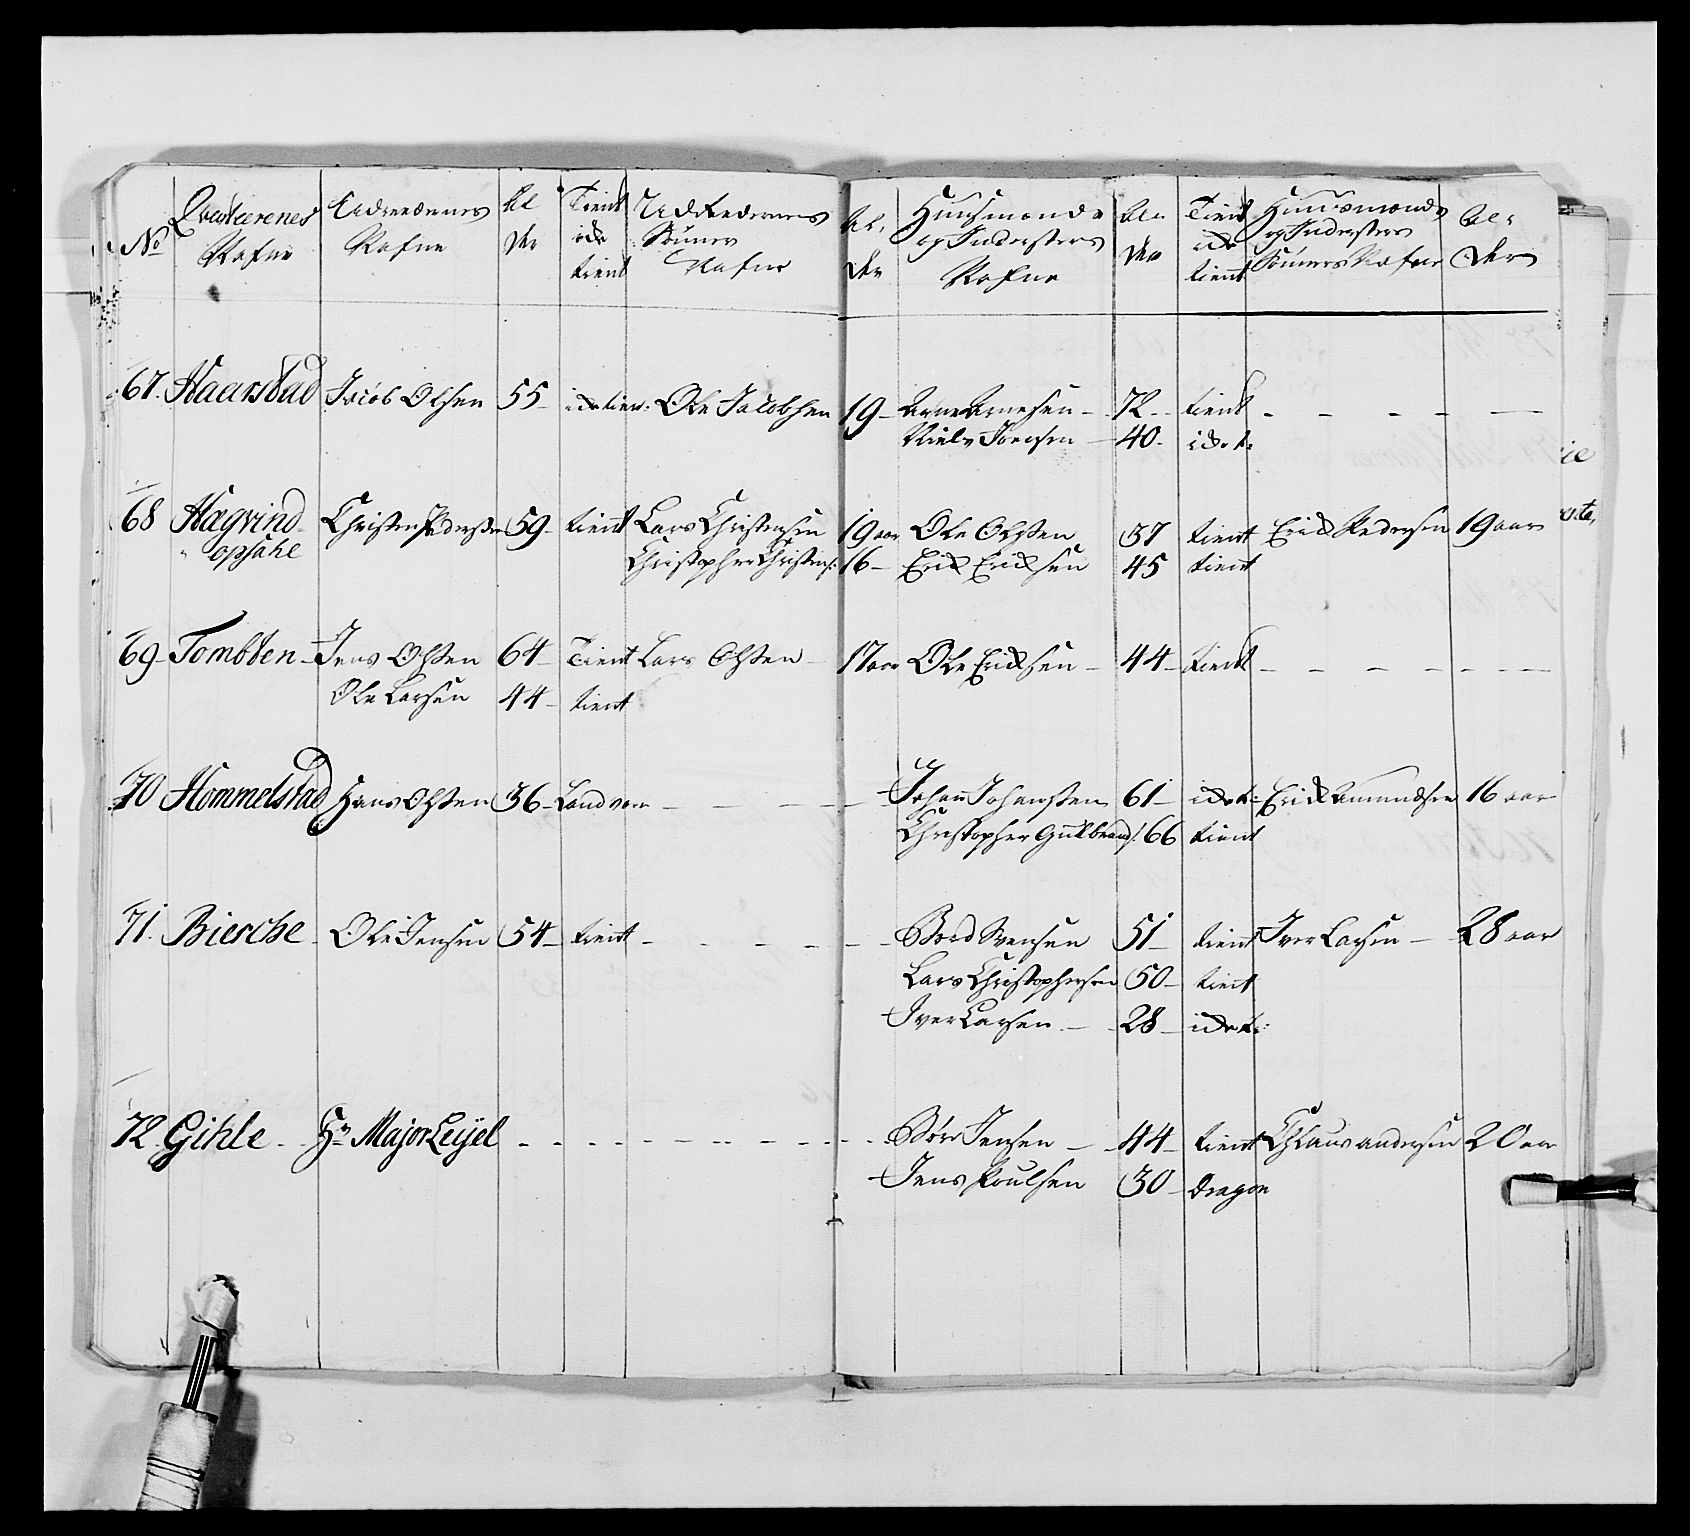 No Qvarteerenes Nafne Udreedernes Nafne Al der Tient icke tient Udreedernes Sönner Nafne Al, der Huusmænds og Inderster Nafne Al= der Tient icke tient Huusmænds og Inderster Sönners Nafne Al= der
67. Haarstad Jacob Olsen 55 icke tien: Ole Jacobsen 19 Arne Arnesen 72 tient
Niels Joensen 40 icke t:
68 Hægvind Christen Pedersen 59 tient Lars Christensen 19 aar Ole Olssen 37 tient Erich Pedersen 19 aar
opsahl Christopher Christens: 16 Erich Erichsen 45 tient
69 Tombten Jens Olssen 64 Tient Lars Olssen 17 aar Ole Erichsen 44 tient
Ole Larsen 44 tient
70 Hommelstad Hans Olssen 36 Landvær Johan Johanssen 61 icke t: Erich Amundsen 16 aar
Christopher Gulbrands: 66 tient
71. Biercke Ole Jensen 54 tient Bord Svensen 51 tient Iver Larsen 28 aar
Lars Christophersen 50 tient
Iver Larsen 28 icke t:
72 Gihle Hr Major Leijel Börre Jensen 44 tient Chlaus andersen 20 aar
Jens Poulsen 30 Dragon